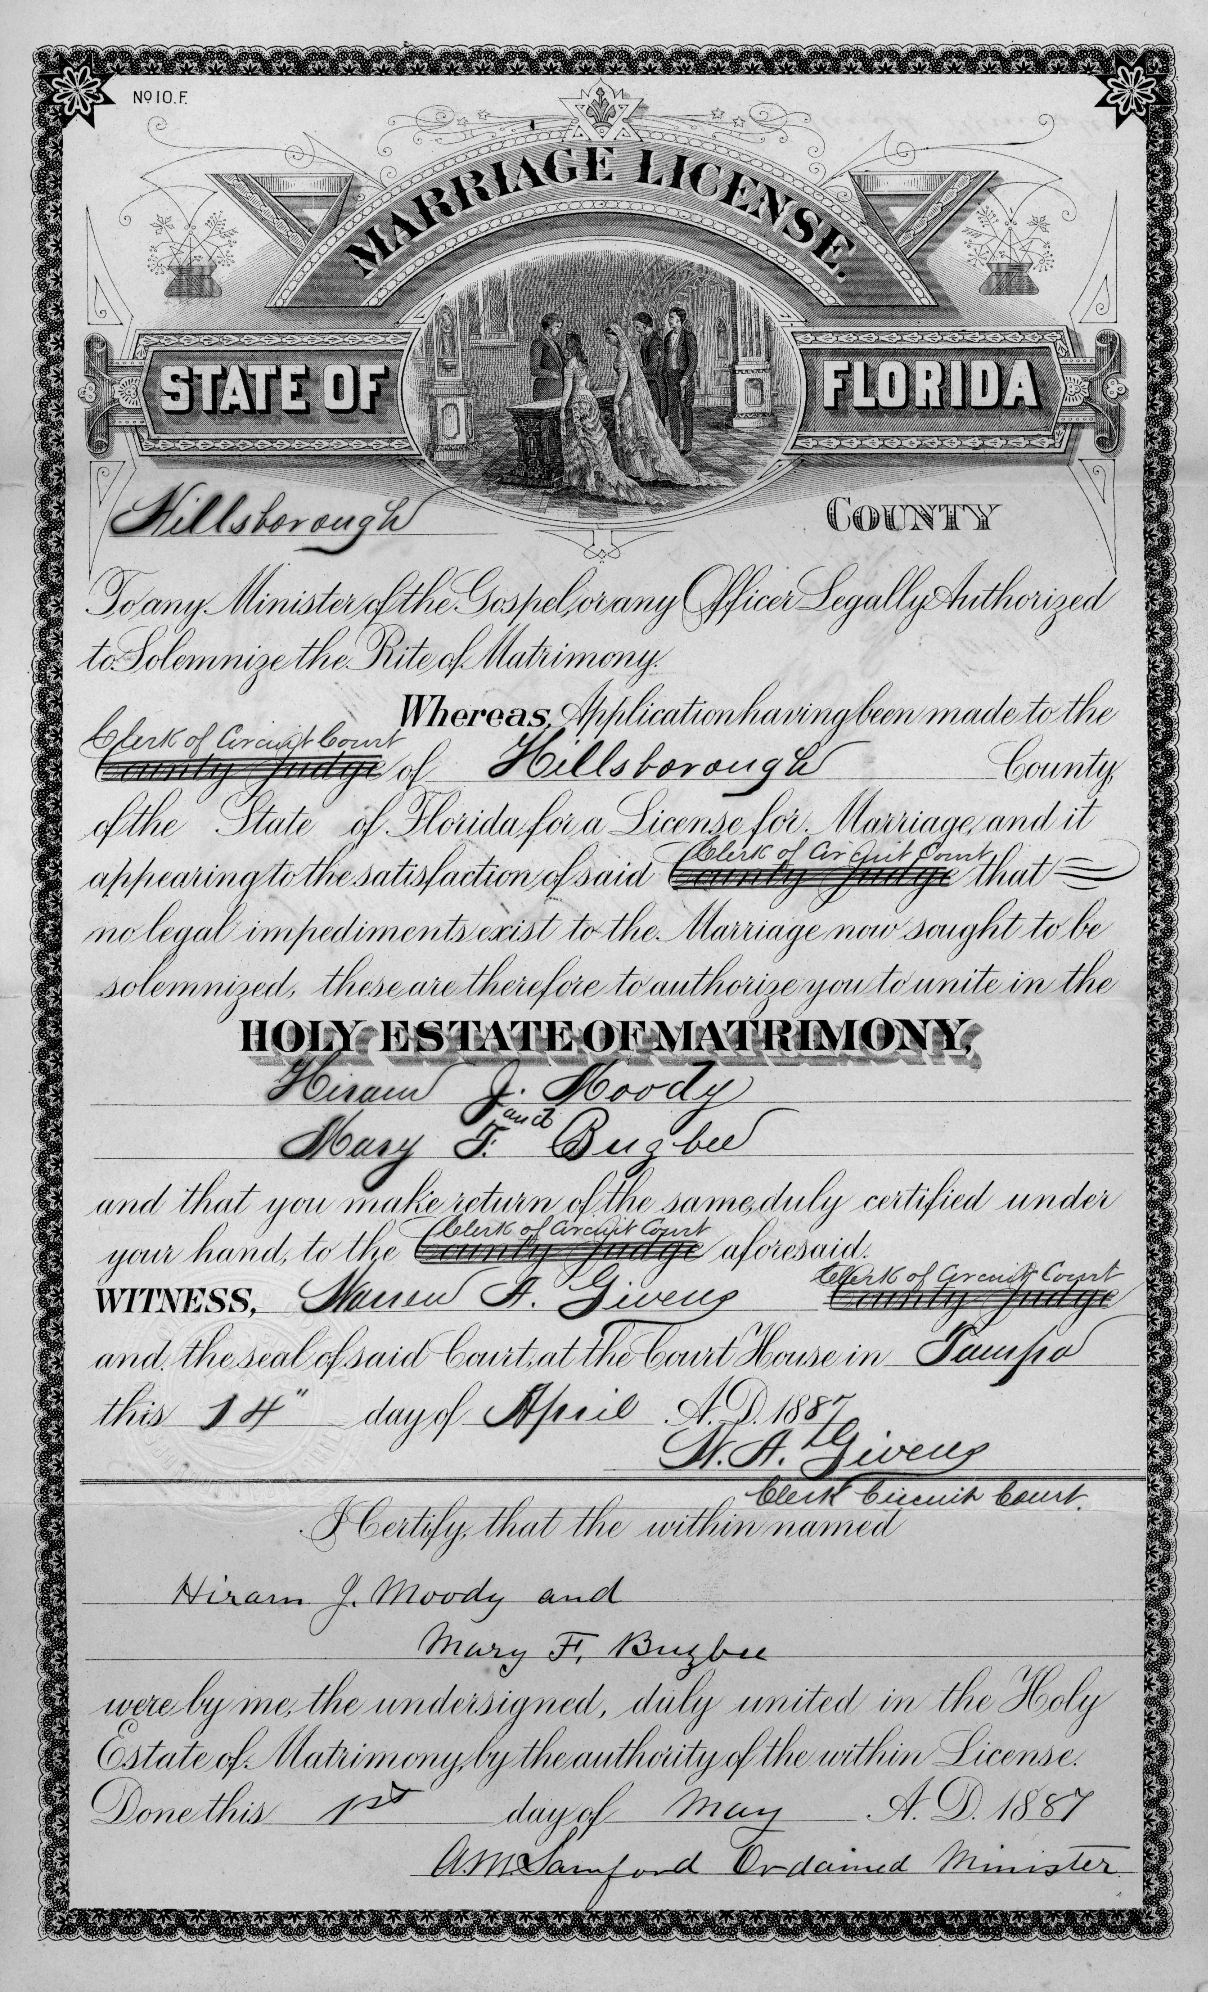 No 10.F.
MARRIAGE LICENSE.
STATE OF FLORIDA
Hillsborough COUNTY
To any Minister of the Gospel, or any Officer Legally Authorized
to Solemnize the Rite of Matrimony.
Whereas, Application having been made to the
Clerk of Circuit Court
County Judge of Hillsborough County,
of the State of Florida, for a License for Marriage, and it
Clerk of Circuit Court
appearing to the satisfaction of said County Judge that
no legal impediments exist to the Marriage now sought to be
solemnized, these are therefore to authorize you to unite in the
HOLY ESTATE OF MATRIMONY,
Hiram J. Moody
and
Mary F. Bugbee
and that you make return of the same, duly certified under
Clerk of Circuit Court
your hand, to the County Judge aforesaid.
Clerk of Circuit Court
WITNESS, Warren A. Givens County Judge
and the seal of said Court, at the Court House in Tampa
this 14" day of April A.D. 1887
W. A. Givens
Clerk Circuit Court.
I Certify, that the within named
Hiram J. Moody and
Mary F. Bugbee
were by me, the undersigned, duly united in the Holy
Estate of Matrimony, by the authority of the within License.
Done this 1st day of May A.D. 1887
A.M. Samford Ordained Minister